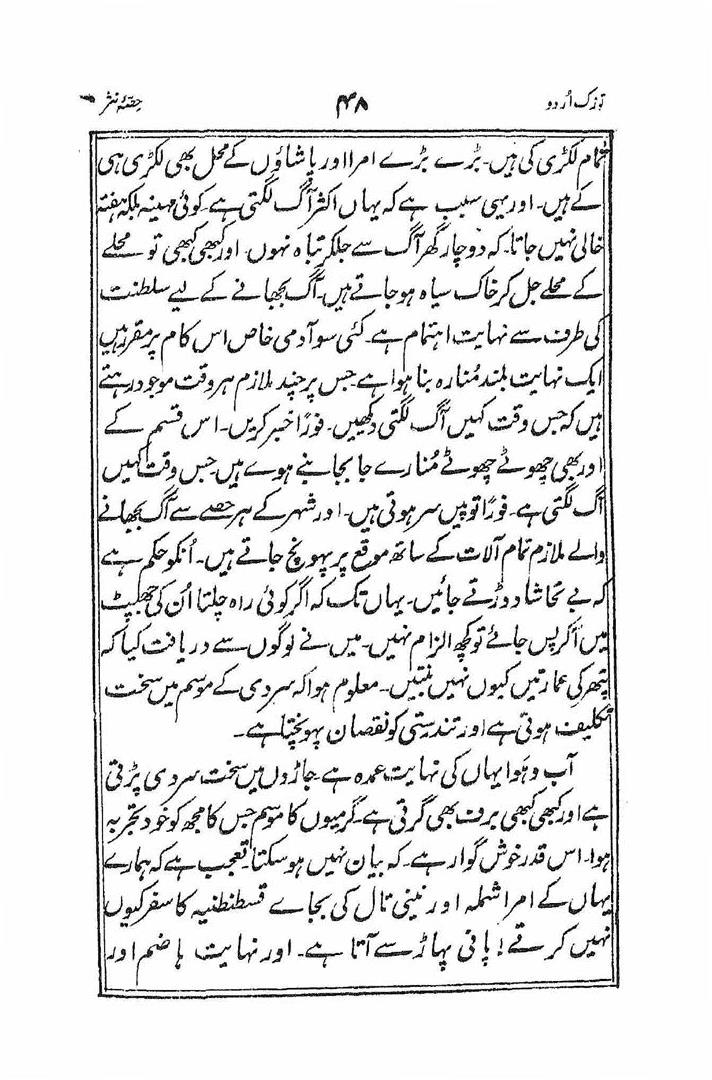 تزک اُردو ۴۸ حصّۂ نثر
تمام لکڑی کی ہیں۔ بڑے بڑے امرا اور پاشاؤں کے محل بھی لکڑی ہی
کے ہیں۔ اور یہی سبب ہے کہ یہاں اکثر آگ لگتی ہے۔ کوئی مہینہ بلکہ ہفتہ
خالی نہیں جاتا۔ کہ دوچار گھر آگ سے جلکر تباہ نہوں۔ اور کبھی کبھی تو محلے
کے محلے جل کر خاک سیاہ ہو جاتے ہیں۔ آگ بجھانے کے لیے سلطنت
کی طرف سے نہایت اہتمام ہے۔ کئی سو آدمی خاص اس کام پر مقرر ہیں
ایک نہایت بلند مُنارہ بنا ہوا ہے۔ جس پر چند ملازم ہر وقت موجود رہتے
ہیں کہ جس وقت کہیں آگ لگتی دیکھیں۔ فورًا خبر کریں۔ اس قسم کے
اور بھی چھوٹے چھوٹے مُنارے جا بجا بنے ہوے ہیں۔ جس وقت کہیں
آگ لگتی ہے۔ فورًا توپیں سر ہوتی ہیں۔ اور شہر کے ہر حصے سے آگ بجھانے
والے ملازم تمام آلات کے ساتھ موقع پر پہونچ جاتے ہیں۔ اُنکو حکم ہے
کہ بے تحاشا دوڑتے جائیں۔ یہاں تک کہ اگر کوئی راہ چلتا اُن کی جھپیٹ
میں آکر پس جائے تو کچھ الزام نہیں۔ میں نے لوگوں سے دریافت کیا کہ
پتھر کی عمارتیں کیوں نہیں بنتیں۔ معلوم ہوا کہ سردی کے موسم میں سخت
تکلیف ہوتی ہے اور تندرستی کو نقصان پہونچتا ہے۔
آب و ہَوا یہاں کی نہایت عمدہ ہے جاڑوں میں سخت سردی پڑتی
ہے اور کبھی کبھی برف بھی گرتی ہے۔ گرمیوں کا موسم جس کا مجھ کو خود تجربہ
ہوا۔ اس قدر خوش گوار ہے۔ کہ بیان نہیں ہو سکتا۔ تعجب ہے کہ ہمارے
یہاں کے امرا شملہ اور نینی تال کی بجاے قسطنطنیہ کا سفر کیوں
نہیں کرتے! پانی پہاڑ سے آتا ہے۔ اور نہایت ہاضم اور